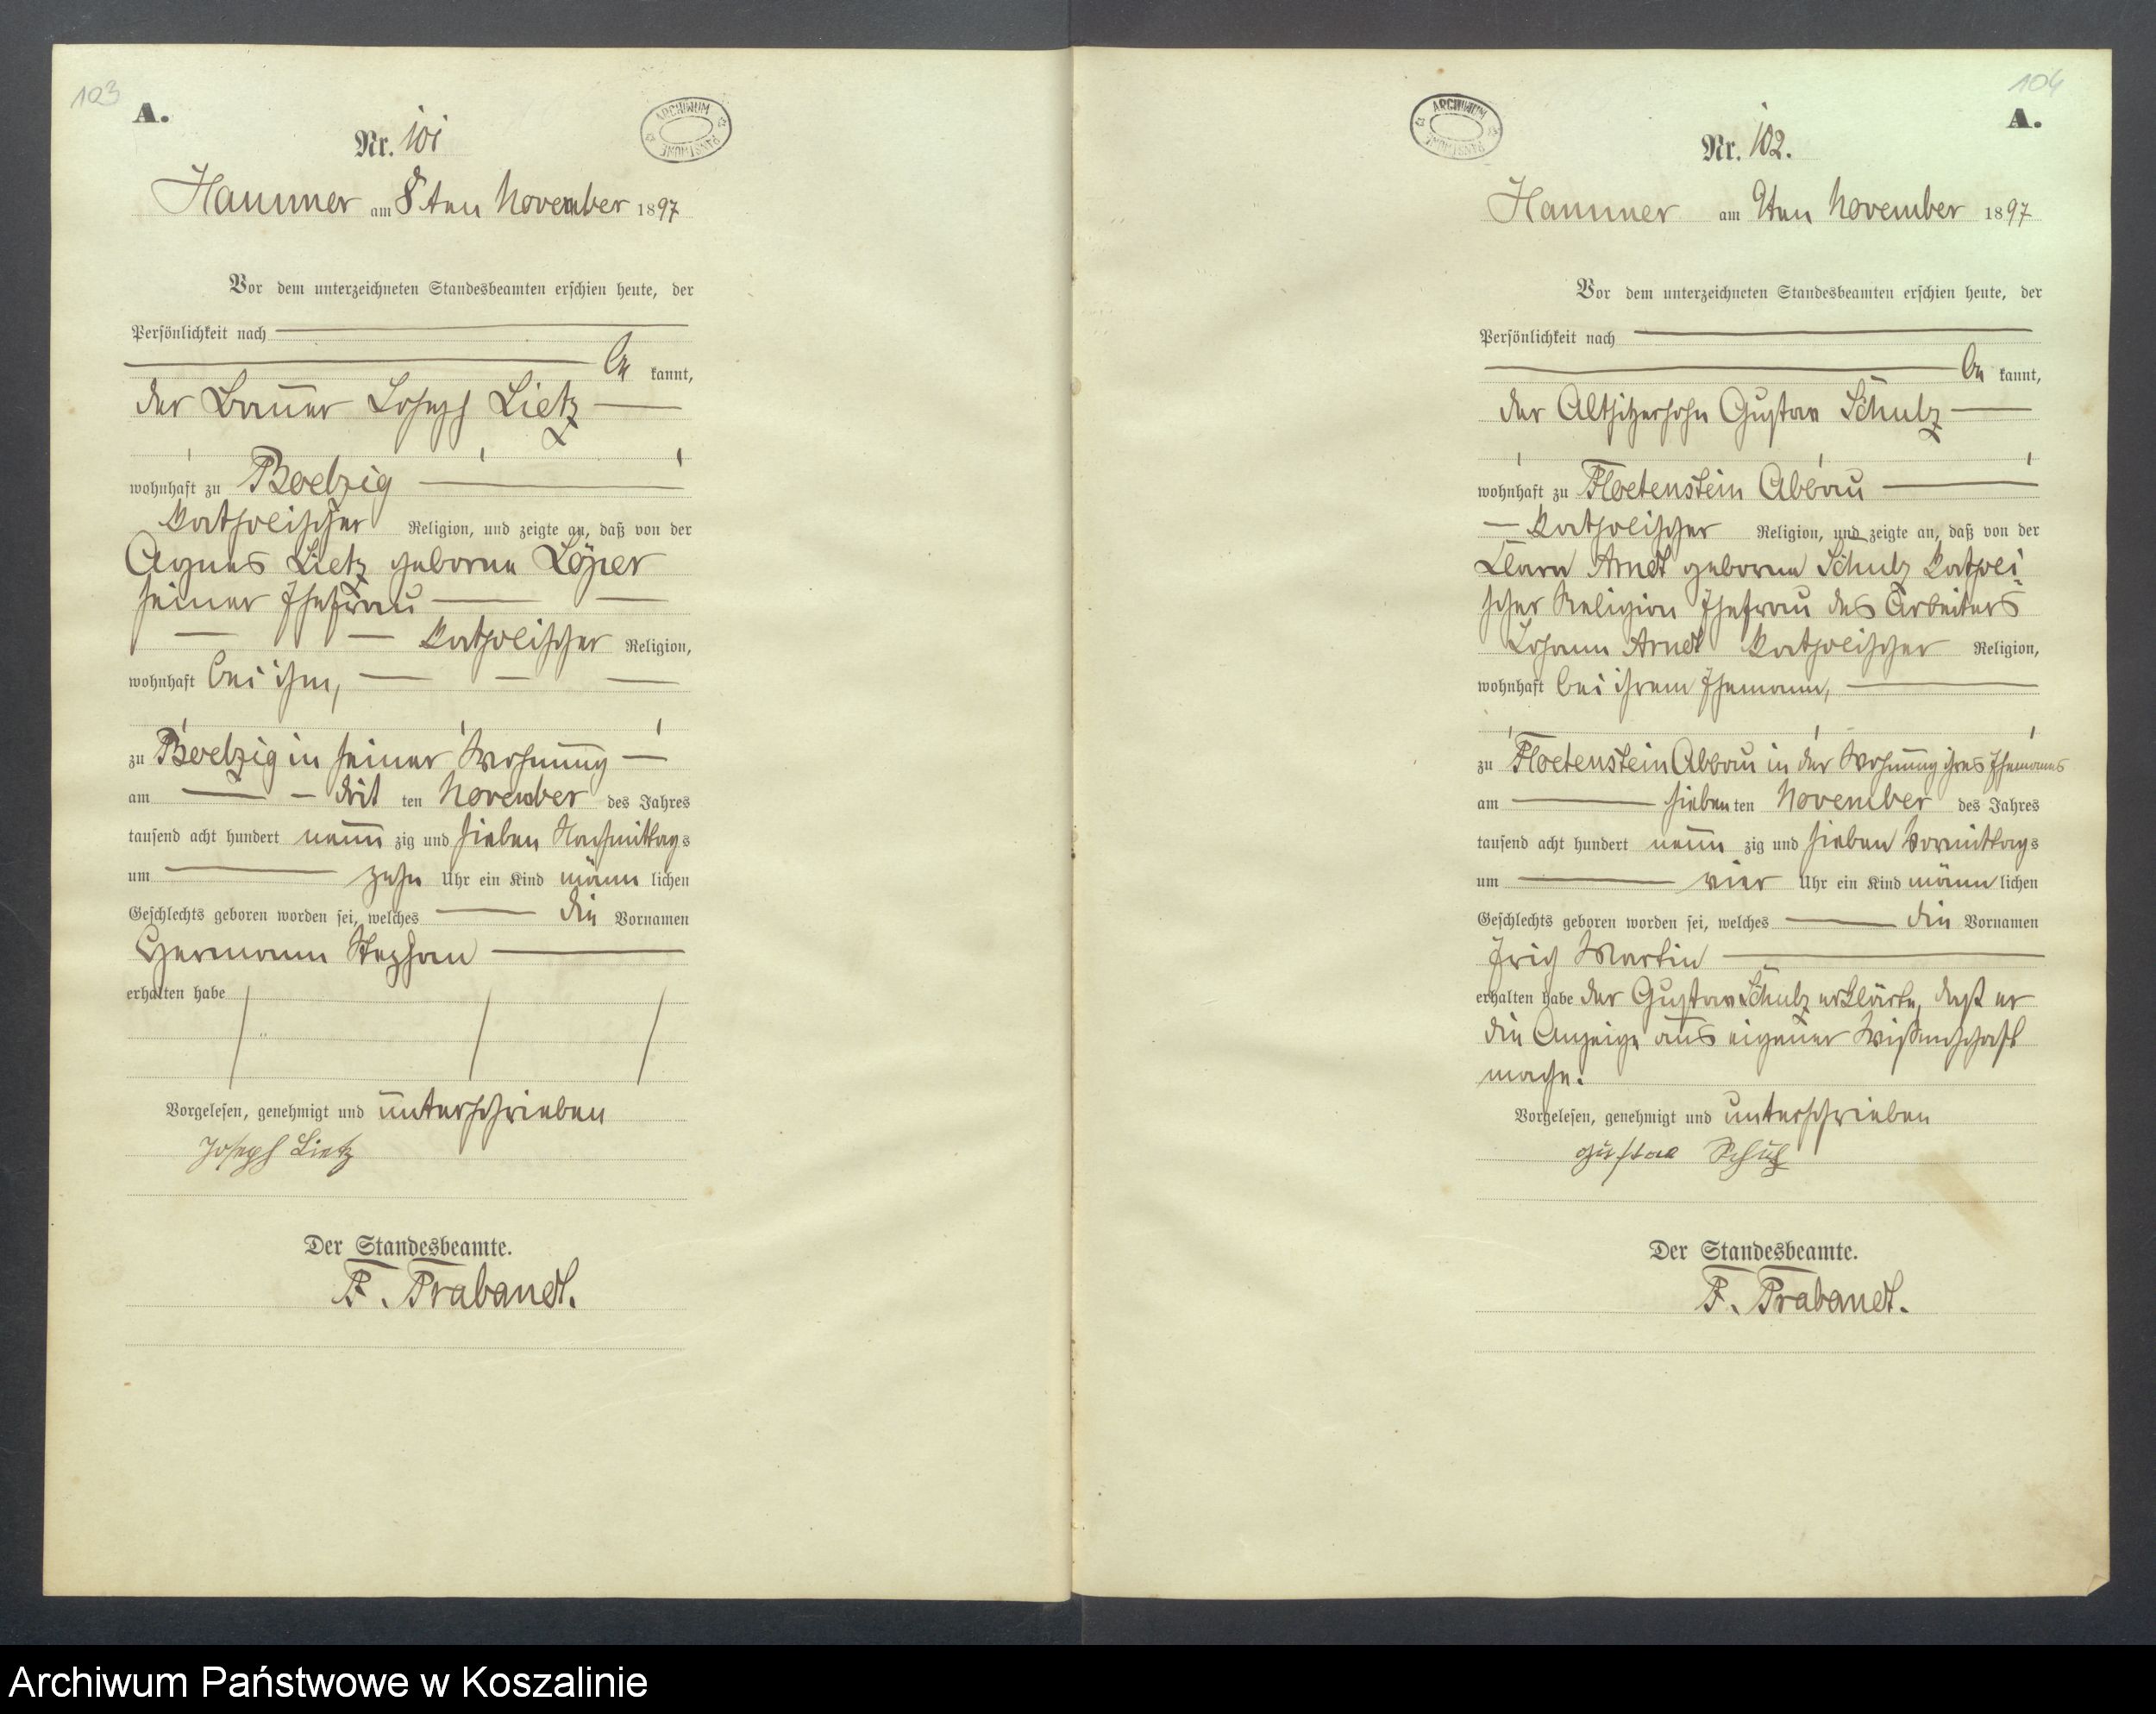 103
A.
ARCHIWUM PAŃSTWOWE
Nr. 101
Hammer am 8ten November 1897
Vor dem unterzeichneten Standesbeamten erschien heute, der
Persönlichkeit nach
be kannt,
der Bauer Joseph Lietz
wohnhaft zu Boelzig
katholischer Religion, und zeigte an, daß von der
Agnes Lietz geborne Löper
seiner Ehefrau
katholischer Religion,
wohnhaft bei ihm,
zu Boelzig in seiner Wohnung
am drit ten November des Jahres
tausend acht hundert neun zig und sieben Nachmittags
um zehn Uhr ein Kind männ lichen
Geschlechts geboren worden sei, welches die Vornamen
Hermann Stephan
erhalten habe
Vorgelesen, genehmigt und unterschrieben
Joseph Lietz
Der Standesbeamte.
F. Trabandt.
104
A.
ARCHIWUM PAŃSTWOWE
Nr. 102.
Hammer am 9ten November 1897
Vor dem unterzeichneten Standesbeamten erschien heute, der
Persönlichkeit nach
be kannt,
der Altsitzersohn Gustav Schulz
wohnhaft zu Floetenstein Abbau
katholischer Religion, und zeigte an, daß von der
Clara Arndt geborne Schulz katholi
scher Religion Ehefrau des Arbeiters
Johann Arndt katholischer Religion,
wohnhaft bei ihrem Ehemann,
zu Floetenstein Abbau in der Wohnung ihres Ehemanns
am sieben ten November des Jahres
tausend acht hundert neun zig und sieben Vormittags
um vier Uhr ein Kind männ lichen
Geschlechts geboren worden sei, welches die Vornamen
Erich Martin
erhalten habe der Gustav Schulz erklärte, daß er
die Anzeige aus eigener Wissenschaft
mache.
Vorgelesen, genehmigt und unterschrieben
Gustav Schulz
Der Standesbeamte.
F. Trabandt.
Archiwum Państwowe w Koszalinie